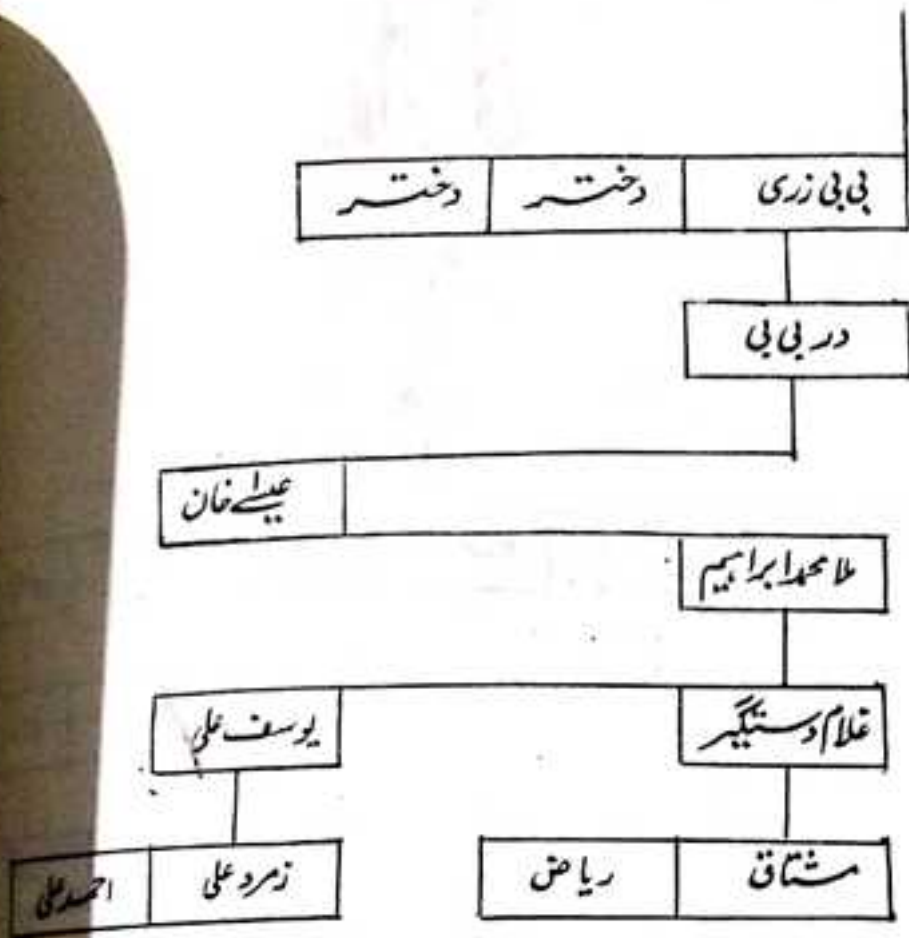 بی بی زری دختر دختر
در بی بی
عیسےٰ خان
ملا محمد ابراہیم
غلام دستگیر یوسف علی
مشتاق ریاض زمرد علی احمد علی